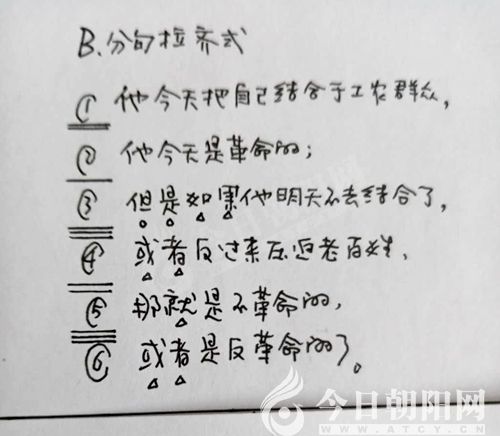 B.分句拉齐式
① 他今天把自己结合于工农群众，
② 他今天是革命的；
③ 但是如果他明天不去结合了，
④ 或者反过来压迫老百姓，
⑤ 那就是不革命的，
⑥ 或者是反革命的了。
今日朝阳网
WWW.ATCY.CN